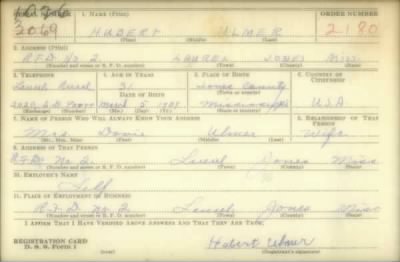 1. NAME (Print)
ORDER NUMBER
2069
HUBERT ULMER
2180
(First) (Middle) (Last)
2. ADDRESS (Print)
R.F.D. No. 2 LAUREL JONES Miss
(Number and street or R. F. D. number) (Town) (County) (State)
3. TELEPHONE
4. AGE IN YEARS
5. PLACE OF BIRTH
6. COUNTRY OF CITIZENSHIP
Laurel Rural
31
Jones County
DATE OF BIRTH
(Town or county)
5 1909
Mississippi
U.S.A
(Exchange) (Number)
(Mo.) (Day) (Yr.)
(State or country)
7. NAME OF PERSON WHO WILL ALWAYS KNOW YOUR ADDRESS
8. RELATIONSHIP OF THAT PERSON
Mrs Ulmer Wife
(Mr., Mrs., Miss) (First) (Middle) (Last)
9. ADDRESS OF THAT PERSON
R.F.D. No 2. Laurel Jones Miss
(Number and street or R. F. D. number) (Town) (County) (State)
10. EMPLOYER'S NAME
Self
11. PLACE OF EMPLOYMENT OR BUSINESS
R.F.D No 2 Laurel Jones Miss
(Number and street or R. F. D. number) (Town) (County) (State)
I AFFIRM THAT I HAVE VERIFIED ABOVE ANSWERS AND THAT THEY ARE TRUE.
REGISTRATION CARD
D. S. S. Form 1
Hubert Ulmer
(Registrant's signature)